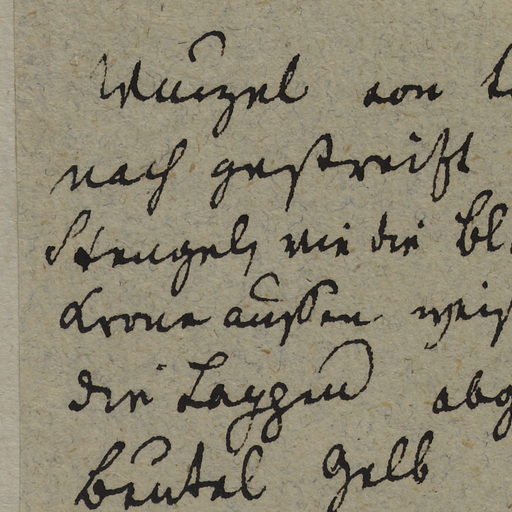 Wurzel von
nach gestreift
Stengel, wie die Bl
Krone außen weiß
die Lappen abg
Beutel Gelb